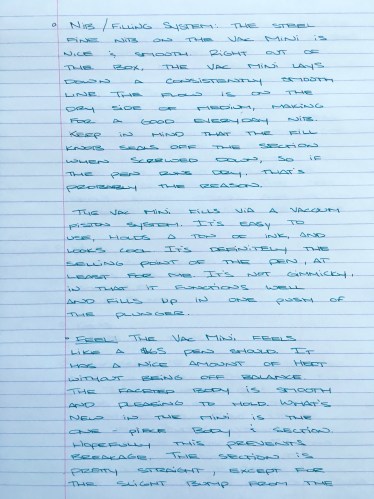 • Nib/Filling System: The steel
fine nibs on the Vac Mini is
nice & smooth right out of
the box. The Vac Mini lays
down a consistently smooth
line. The flow is on the
dry side of medium, making
for a good everyday nib.
Keep in mind that the fill
knob seals off the section
when screwed down, so if
the pen runs dry, that's
probably the reason.
The Vac Mini fills via a vacuum
piston system. It's easy to
use, holds a ton of ink, and
looks cool. It's definitely the
selling point of the pen, at
least for me. It's not gimmicky,
in that it functions well
and fills up in one push of
the plunger.
• Feel: The Vac Mini feels
like a $65 pen should. It
has a nice amount of heft
without being off balance.
The faceted body is smooth
and pleasing to hold. What's
new in the Mini is the
one-piece body & section.
Hopefully this prevents
breakage. The section is
pretty straight, except for
the slight bump from the